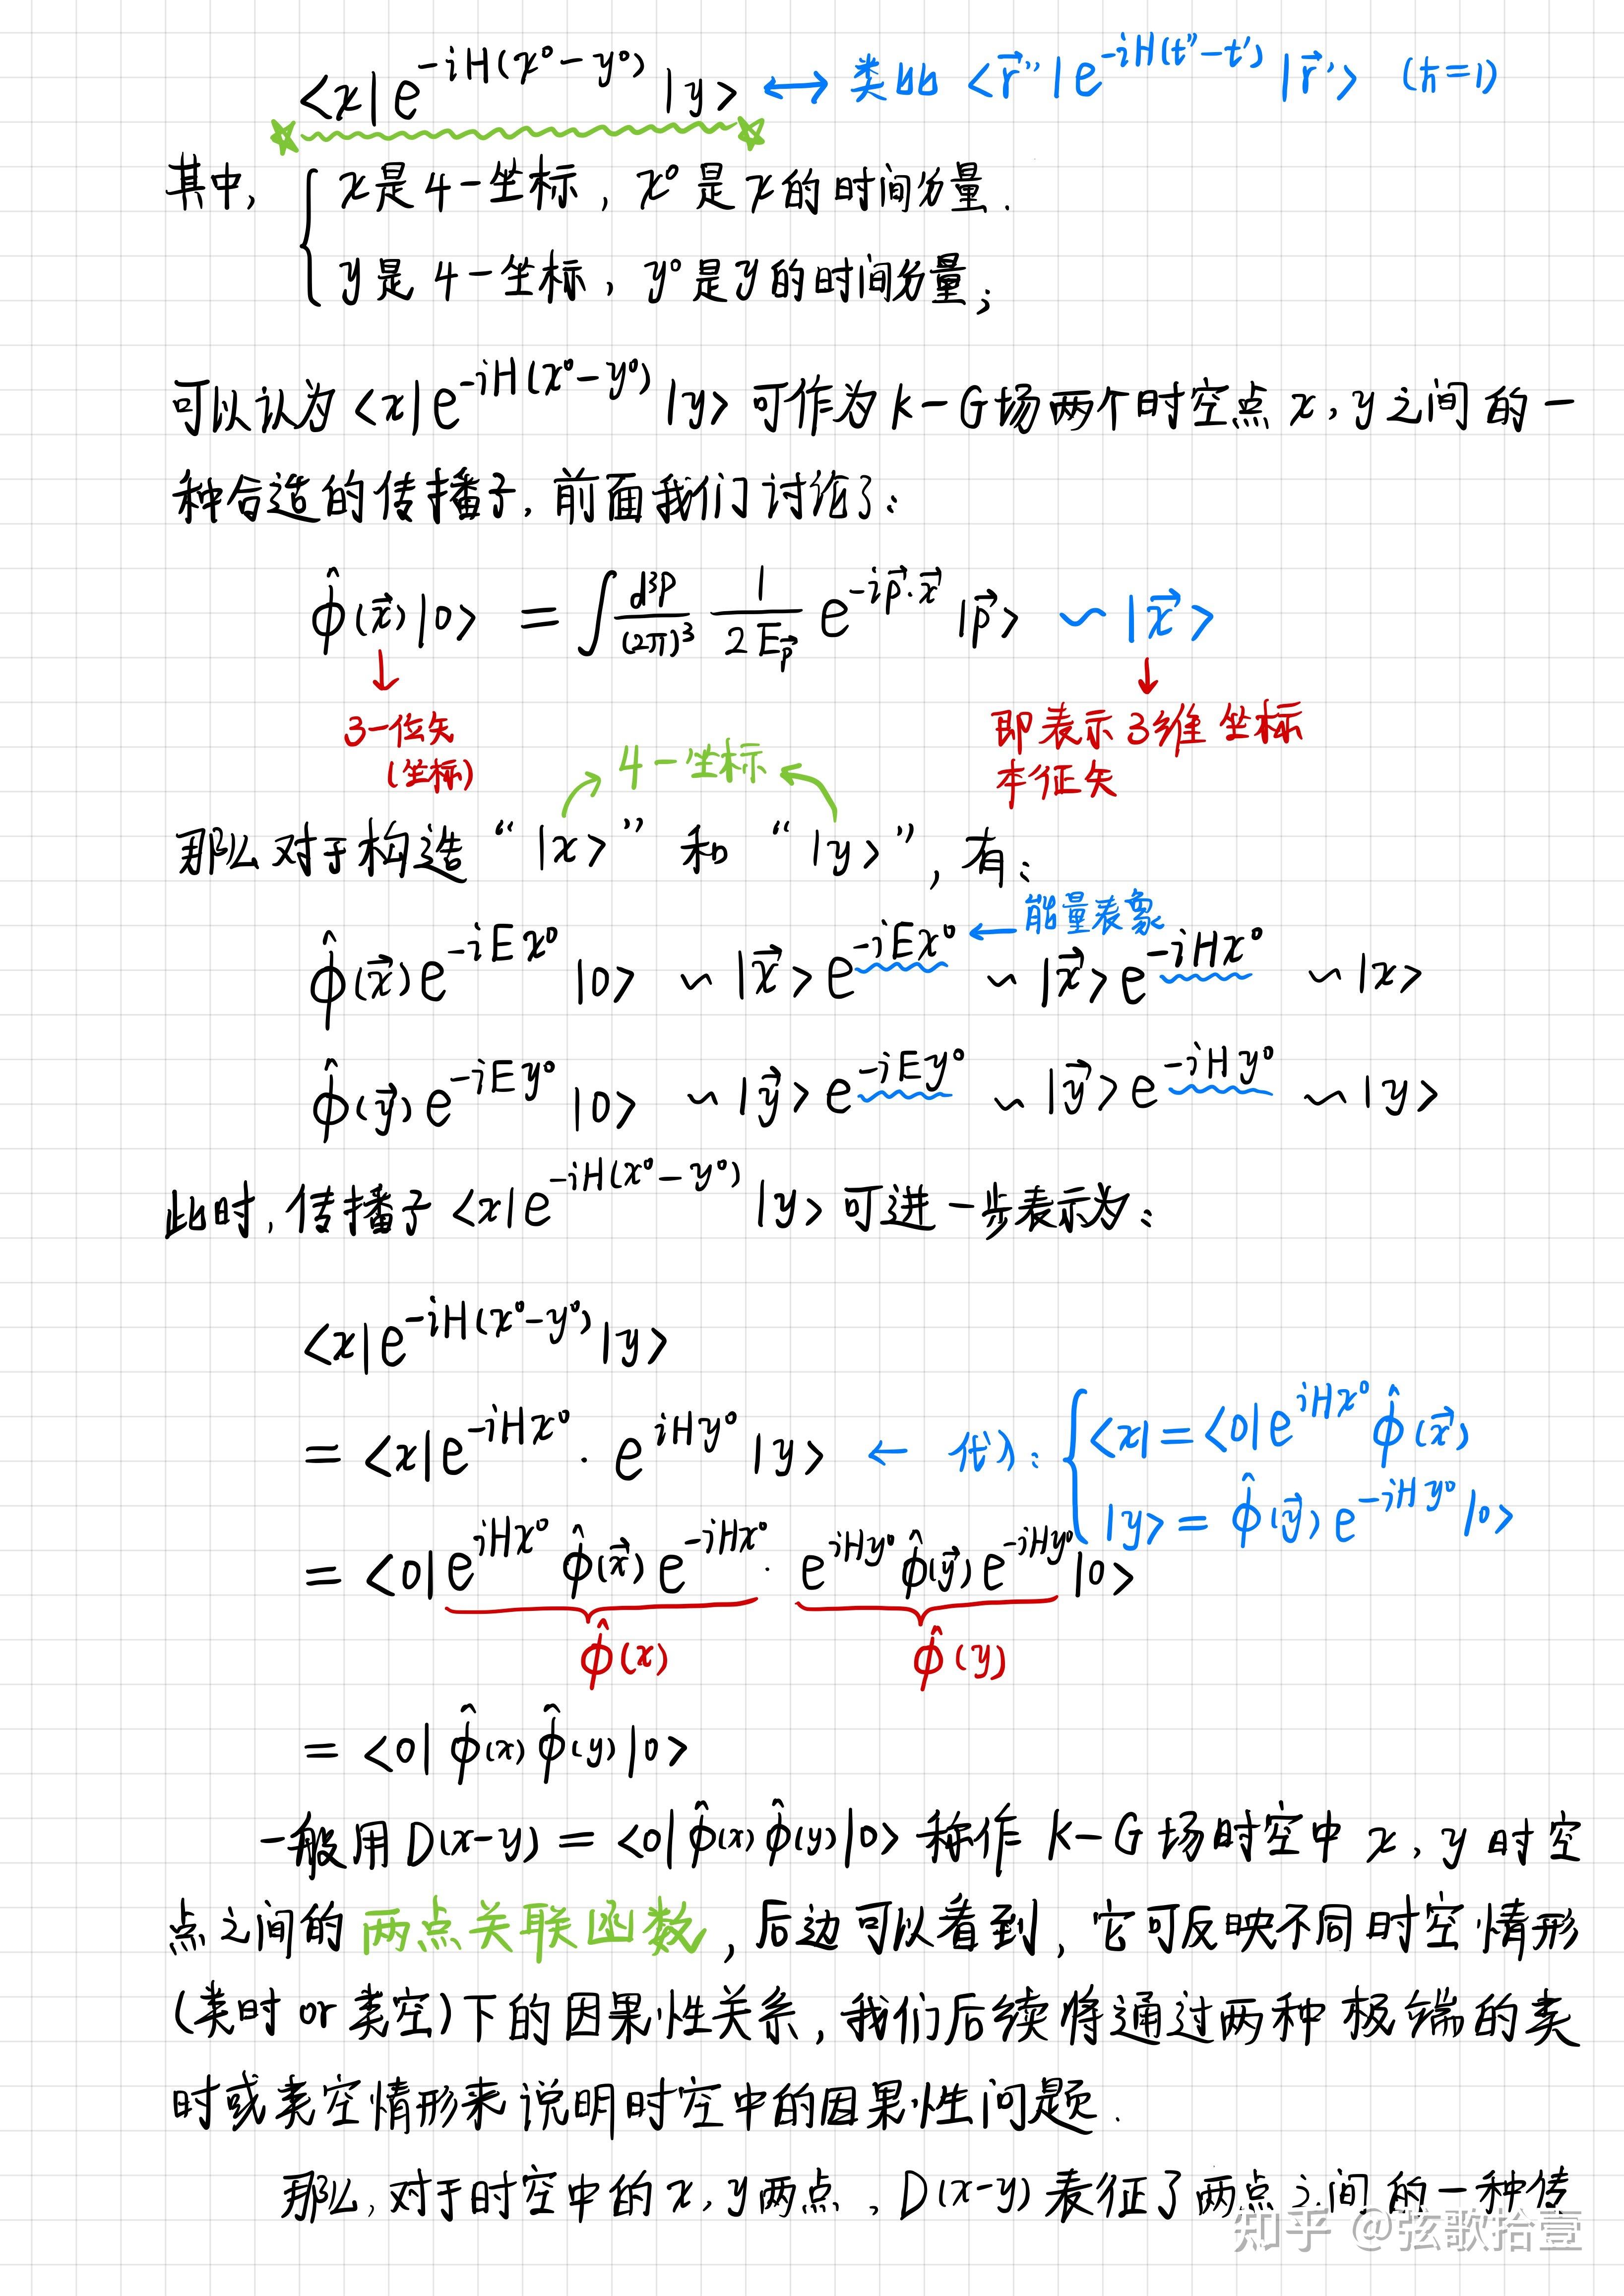 <x|e^{-iH(x⁰-y⁰)}|y> ↔ 类比 <r⃗''|e^{-iH(t''-t')}|r⃗'> (ħ=1)
其中, { x是4-坐标, x⁰是x的时间分量.
y是4-坐标, y⁰是y的时间分量;
可以认为<x|e^{-iH(x⁰-y⁰)}|y>可作为K-G场两个时空点x,y之间的一
种合造的传播子,前面我们讨论了:
φ̂(x⃗)|0> = ∫ d³p/(2π)³ 1/(2E_p⃗) e^{-ip⃗·x⃗} |p⃗> ∼ |x⃗>
↓ ↓
3-位矢 即表示3维坐标
(坐标) 4-坐标 本征矢
那么对于构造“|x>”和“|y>”,有:
← 能量表象
φ̂(x⃗)e^{-iEx⁰}|0> ∼ |x⃗>e^{-iEx⁰} ∼ |x⃗>e^{-iHx⁰} ∼ |x>
φ̂(y⃗)e^{-iEy⁰}|0> ∼ |y⃗>e^{-iEy⁰} ∼ |y⃗>e^{-iHy⁰} ∼ |y>
此时,传播子<x|e^{-iH(x⁰-y⁰)}|y>可进一步表示为:
<x|e^{-iH(x⁰-y⁰)}|y>
= <x|e^{-iHx⁰}·e^{iHy⁰}|y> ← 代入: { <x| = <0|e^{iHx⁰}φ̂(x⃗)
|y> = φ̂(y⃗)e^{-iHy⁰}|0>
= <0|e^{iHx⁰}φ̂(x⃗)e^{-iHx⁰}·e^{iHy⁰}φ̂(y⃗)e^{-iHy⁰}|0>
φ̂(x) φ̂(y)
= <0|φ̂(x)φ̂(y)|0>
一般用D(x-y) = <0|φ̂(x)φ̂(y)|0>称作K-G场时空中x,y时空
点之间的两点关联函数,后边可以看到,它可反映不同时空情形
(类时or类空)下的因果性关系,我们后续将通过两种极端的类
时或类空情形来说明时空中的因果性问题.
那么,对于时空中的x,y两点,D(x-y)表征了两点之间的一种传
知乎 @弦歌拾壹